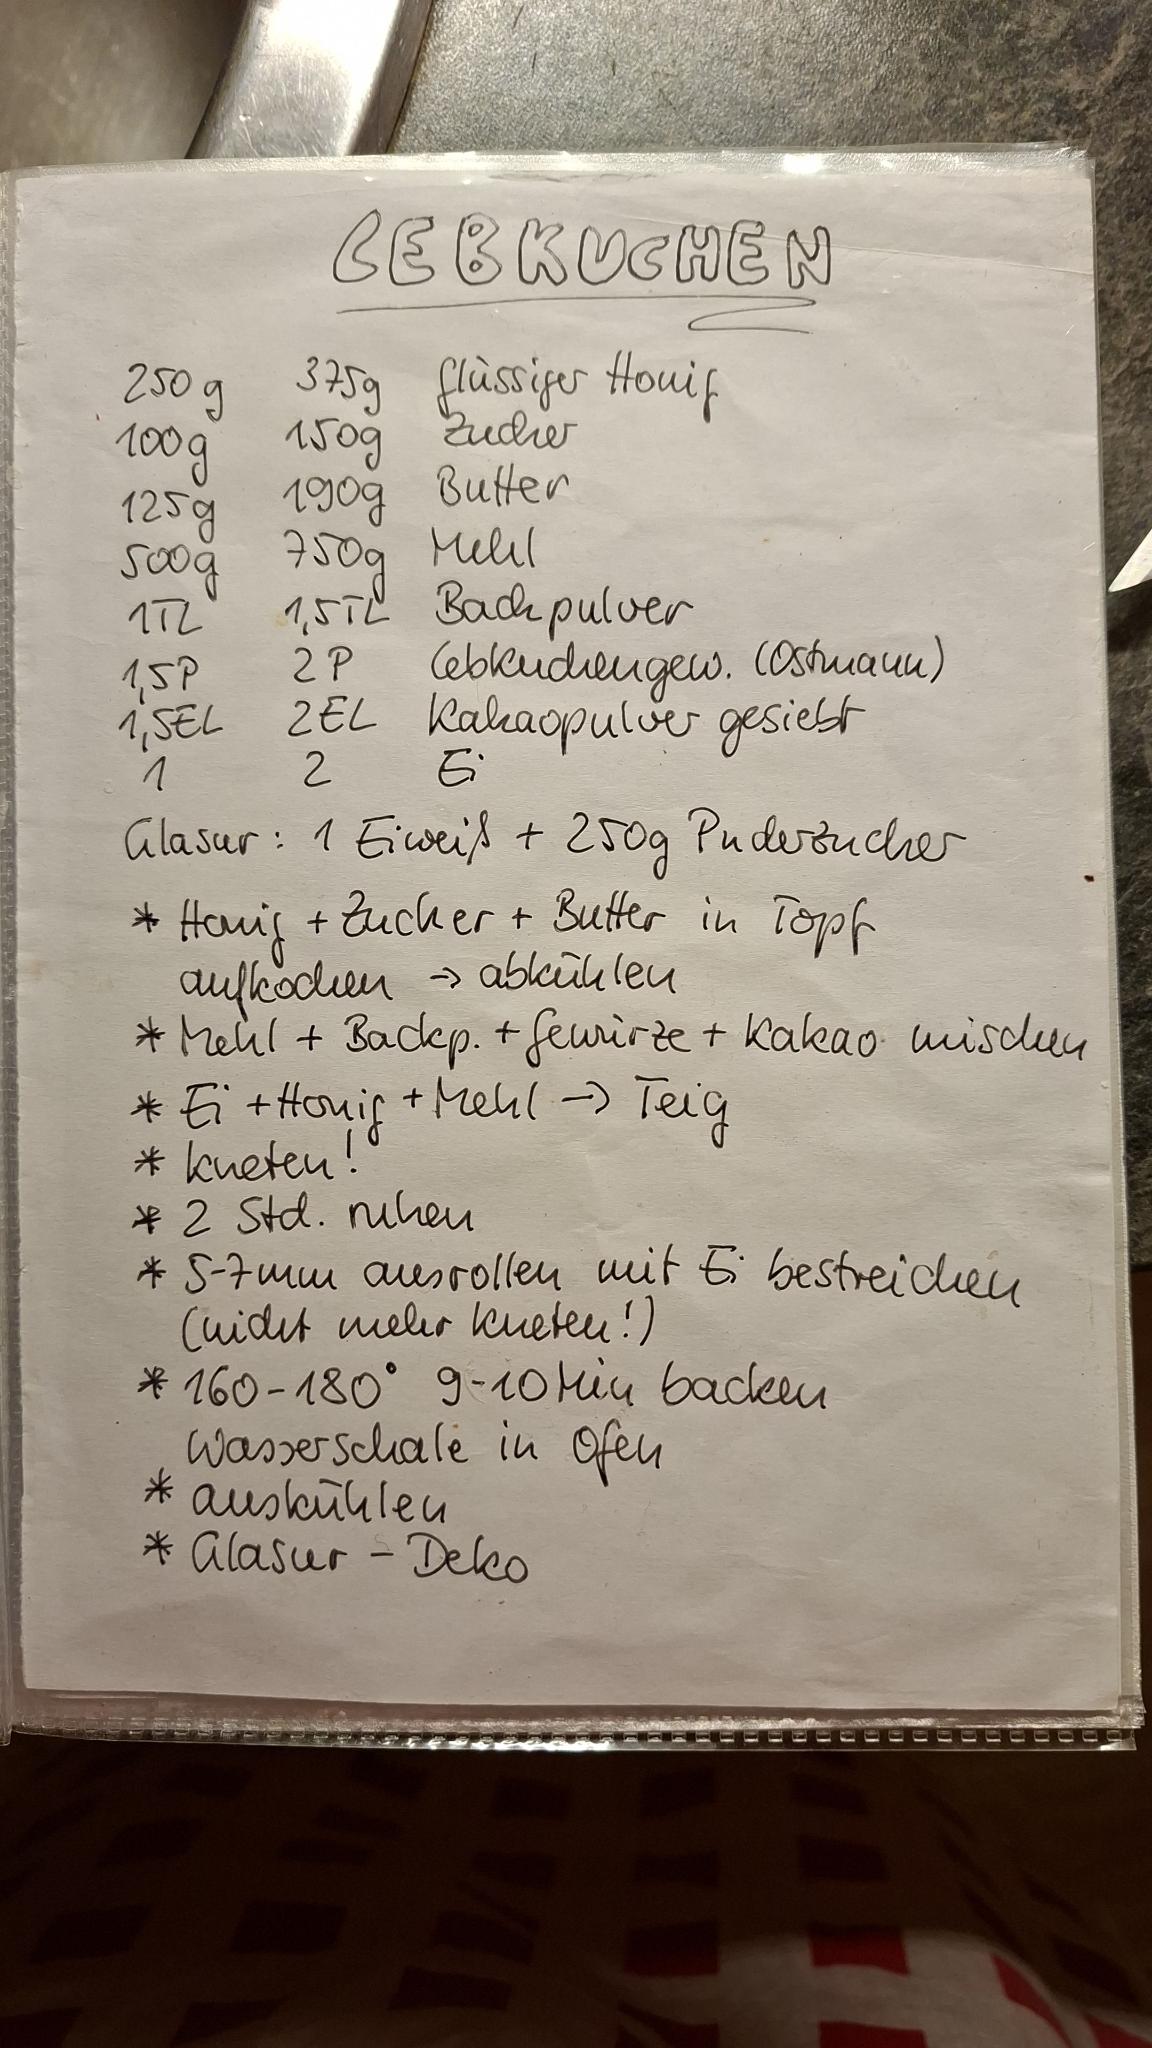 LEBKUCHEN
250g 375g flüssiger Honig
100g 150g Zucker
125g 190g Butter
500g 750g Mehl
1TL 1,5TL Backpulver
1,5P 2P Lebkuchengew. (Ostmann)
1,5EL 2EL Kakaopulver gesiebt
1 2 Ei
Glasur: 1 Eiweiß + 250g Puderzucker
* Honig + Zucker + Butter in Topf
aufkochen → abkühlen
* Mehl + Backp. + Gewürze + Kakao mischen
* Ei + Honig + Mehl → Teig
* kneten!
* 2 Std. ruhen
* 5-7mm ausrollen mit Ei bestreichen
(nicht mehr kneten!)
* 160-180° 9-10 Min backen
Wasserschale in Ofen
* auskühlen
* Glasur - Deko